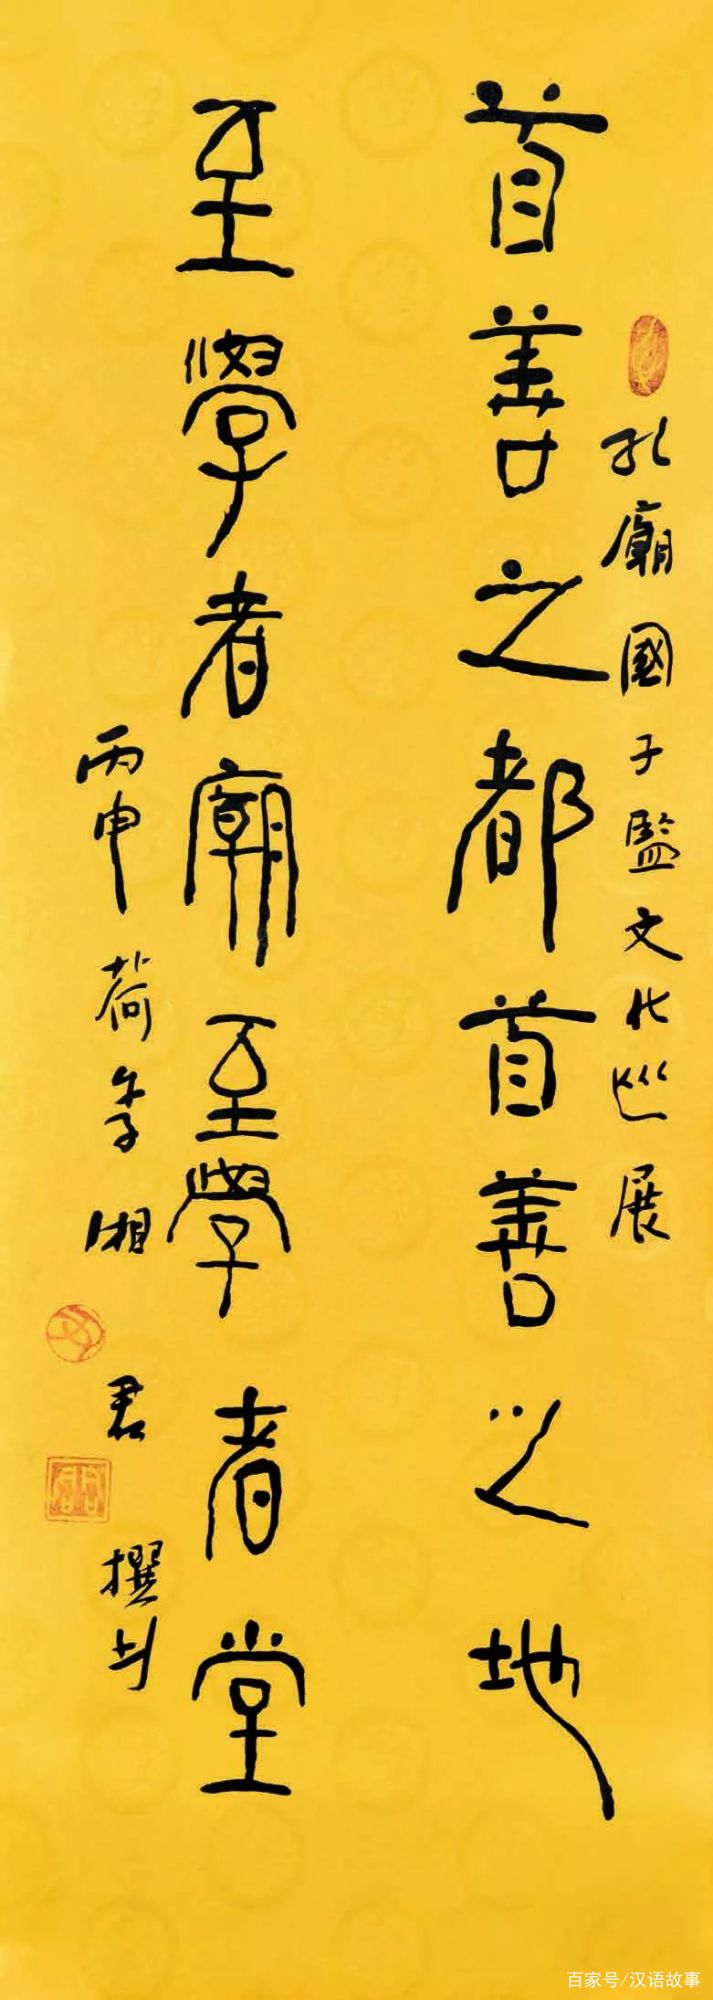 孔廟國子監文化巡展
首善之都首善之地
至學者廟至學者堂
丙申荷季湘君撰书
百家号/汉语故事